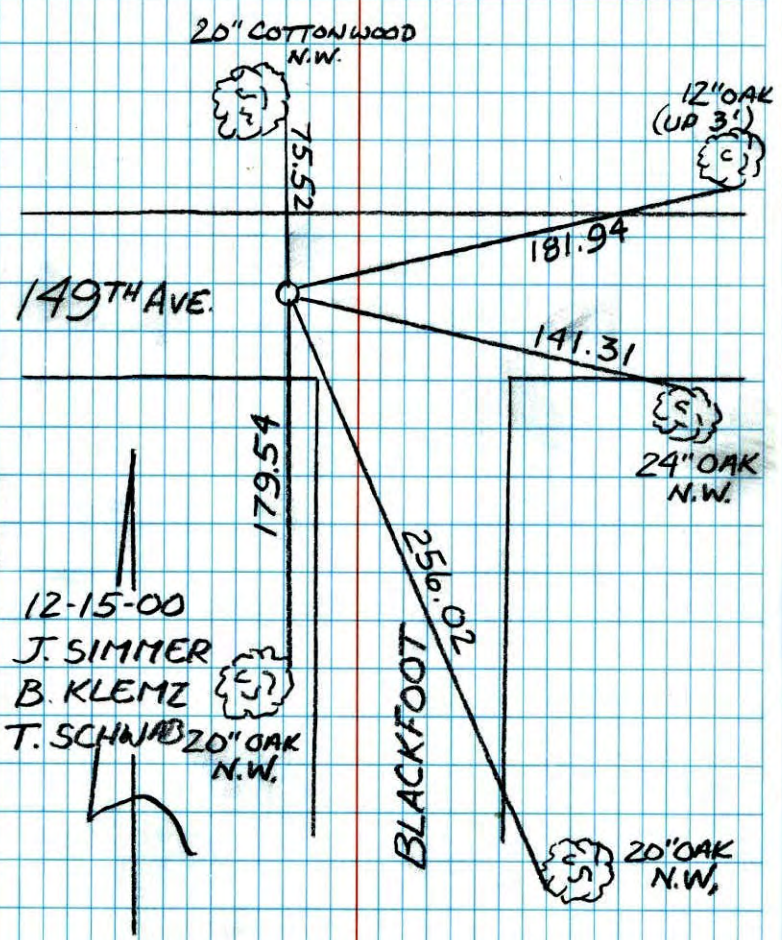 20" COTTONWOOD
N.W.
12" OAK
(UP 3')
75.52
181.94
149TH AVE.
141.31
179.54
24" OAK
N.W.
256.02
12-15-00
J. SIMMER
B. KLEMZ
T. SCHWAB
20" OAK
N.W.
BLACKFOOT
20" OAK
N.W.